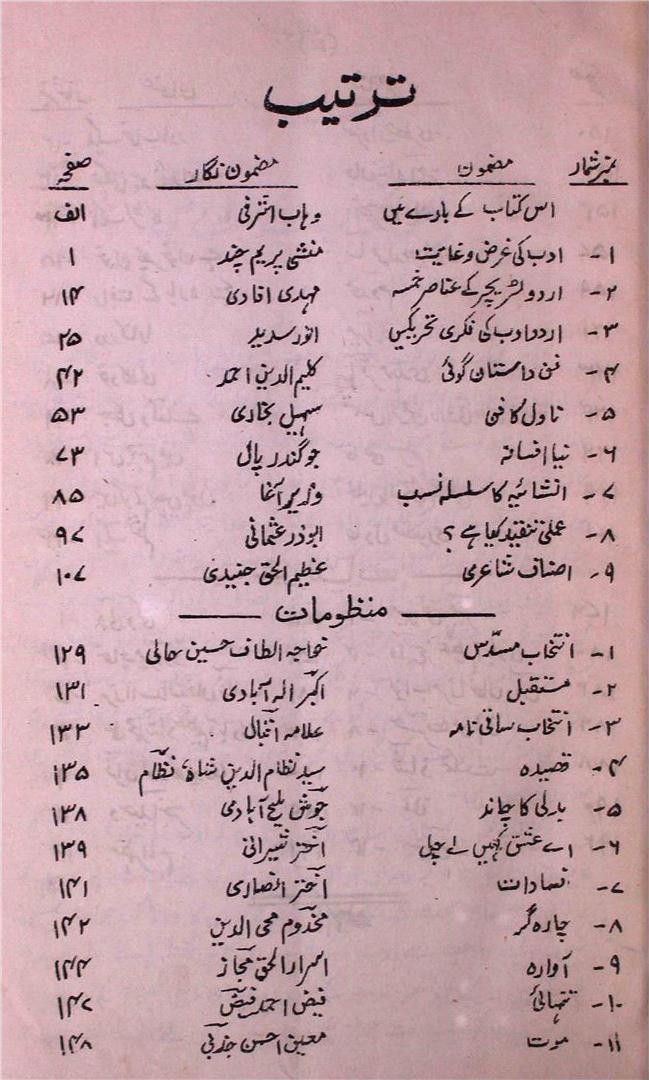 ترتیب
نمبر شمار مضمون مضمون نگار صفحہ
اس کتاب کے بارے میں وہاب اشرفی الف
۱- ادب کی غرض و غایت منشی پریم چند ۱
۲- اردو لٹریچر کے عناصر خمسہ مہدی افادی ۱۴
۳- اردو ادب کی فکری تحریکیں انور سدید ۲۵
۴- فن داستان گوئی کلیم الدین احمد ۴۲
۵- ناول کا فن سہیل بخاری ۵۳
۶- نیا افسانہ جوگندر پال ۷۳
۷- انشائیہ کا سلسلہ نسب وزیر آغا ۸۵
۸- عملی تنقید کیا ہے ؟ ابوذر عثمانی ۹۷
۹- اصناف شاعری عظیم الحق جنیدی ۱۰۷
منظومات
۱- انتخاب مسدّس خواجہ الطاف حسین حالی ۱۲۹
۲- مستقبل اکبر الہ آبادی ۱۳۱
۳- انتخاب ساقی نامہ علامہ اقبال ۱۳۳
۴- قصیدہ سید نظام الدین شاہ، نظام ۱۳۵
۵- بدلی کا چاند جوش ملیح آبادی ۱۳۸
۶- اے عشق کہیں لے چل اختر شیرانی ۱۳۹
۷- فسادات اختر انصاری ۱۴۱
۸- چارہ گر مخدوم محی الدین ۱۴۲
۹- آوارہ اسرار الحق مجاز ۱۴۴
۱۰- تنہائی فیض احمد فیض ۱۴۷
۱۱- موت معین احسن جذبی ۱۴۸